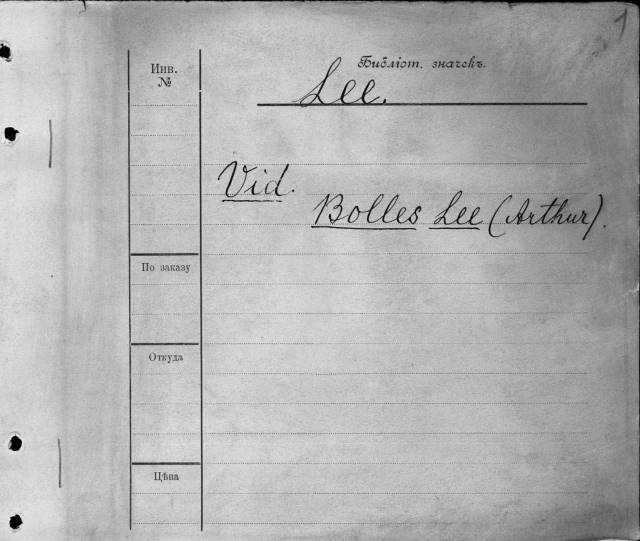 Инв.
№
Библіот. значекъ.
Lee.
Vid.
Bolles Lee (Arthur).
По заказу
Откуда
Цѣна